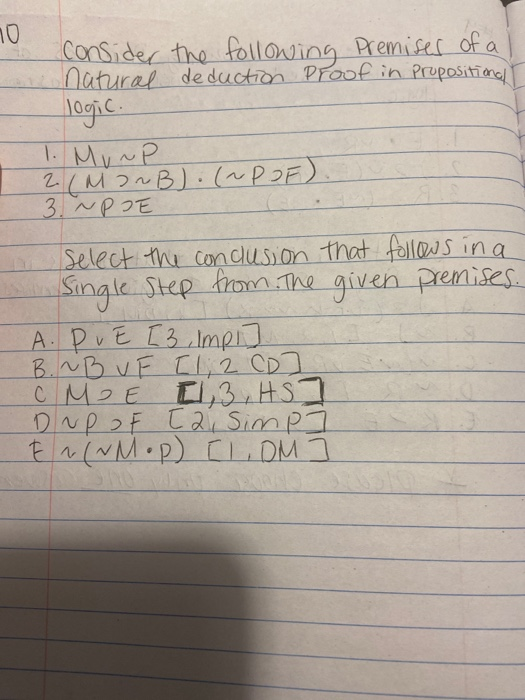 10
Consider the following Premises of a
Natural deduction Proof in Propositional
logic.
1. M v ~P
2. (M ⊃ ~B) · (~P ⊃ F)
3. ~P ⊃ E
Select the conclusion that follows in a
single step from the given premises.
A. P v E [3, Impl]
B. ~B v F [1, 2 CD]
C M ⊃ E [1, 3, HS]
D ~P ⊃ F [2, Simp]
E ~(~M • P) [1, DM]